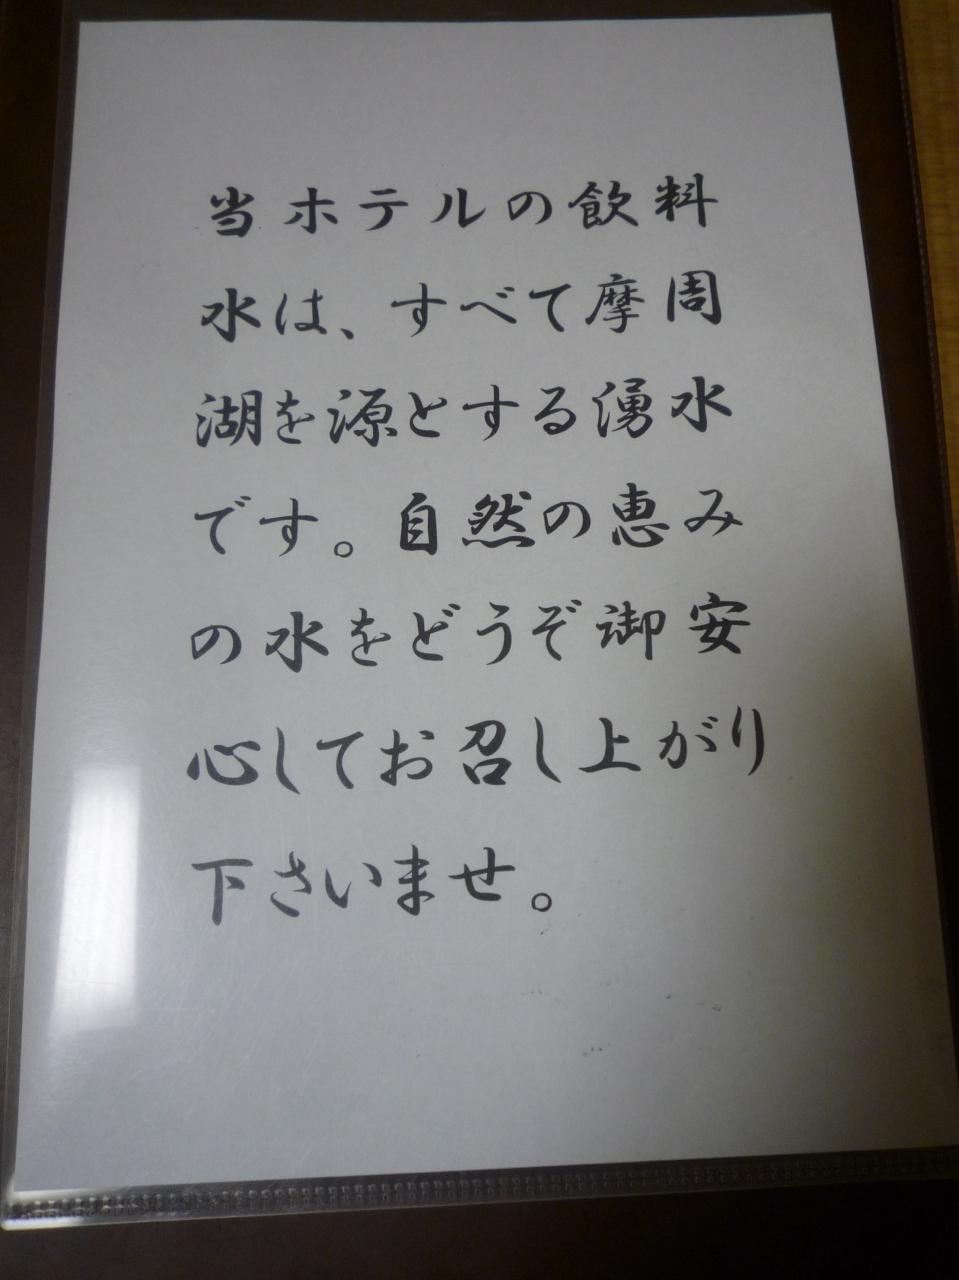 当ホテルの飲料
水は、すべて摩周
湖を源とする湧水
です。自然の恵み
の水をどうぞ御安
心してお召し上がり
下さいませ。